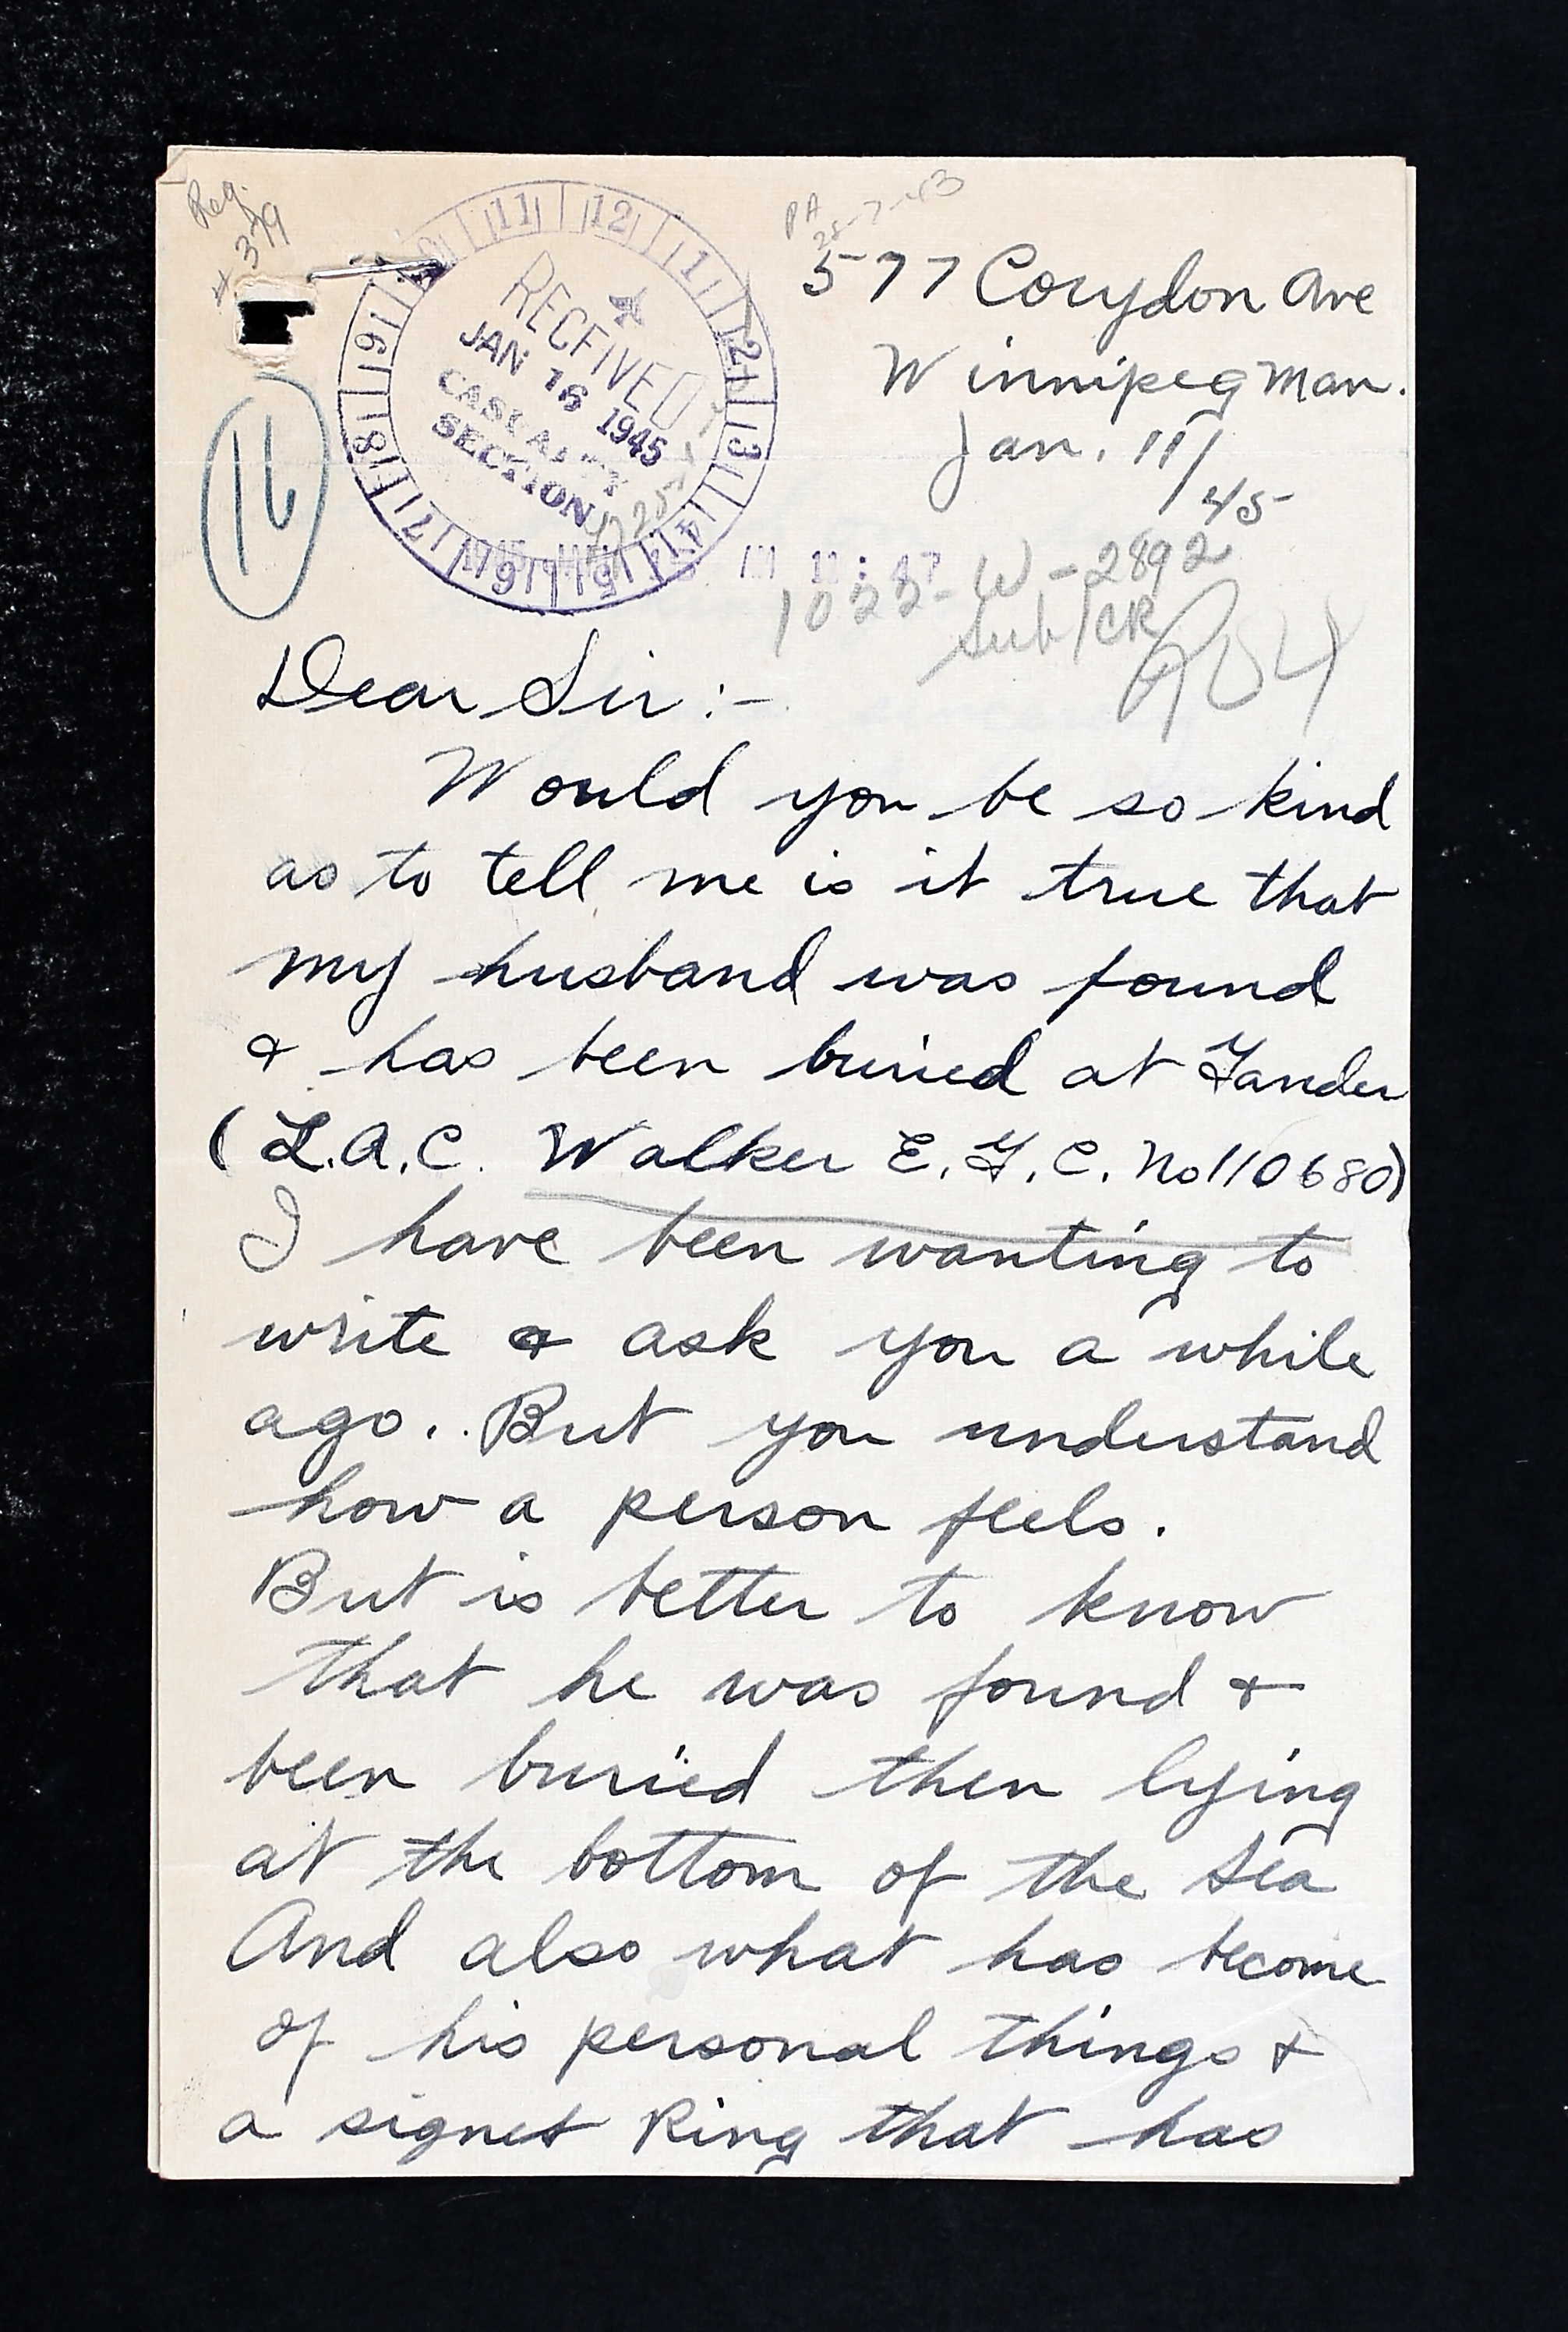 Reg.
# 379
PA
25-7-43
577 Corydon Ave
Winnipeg Man.
Jan. 11/45
11 12 1 2 13 14 15 16 17 18 19
RECEIVED
JAN 16 1945
CASUALTY
SECTION
16
1022-W-2892
Sub/CR
R04
Dear Sir :-
Would you be so kind
as to tell me is it true that
my husband was found
& has been buried at Gander
(L.A.C. Walker E.G.C. No 110680)
I have been wanting to
write & ask you a while
ago.. But you understand
how a person feels.
But is better to know
that he was found &
been buried then lying
at the bottom of the sea
And also what has become
of his personal things &
a signet Ring that has